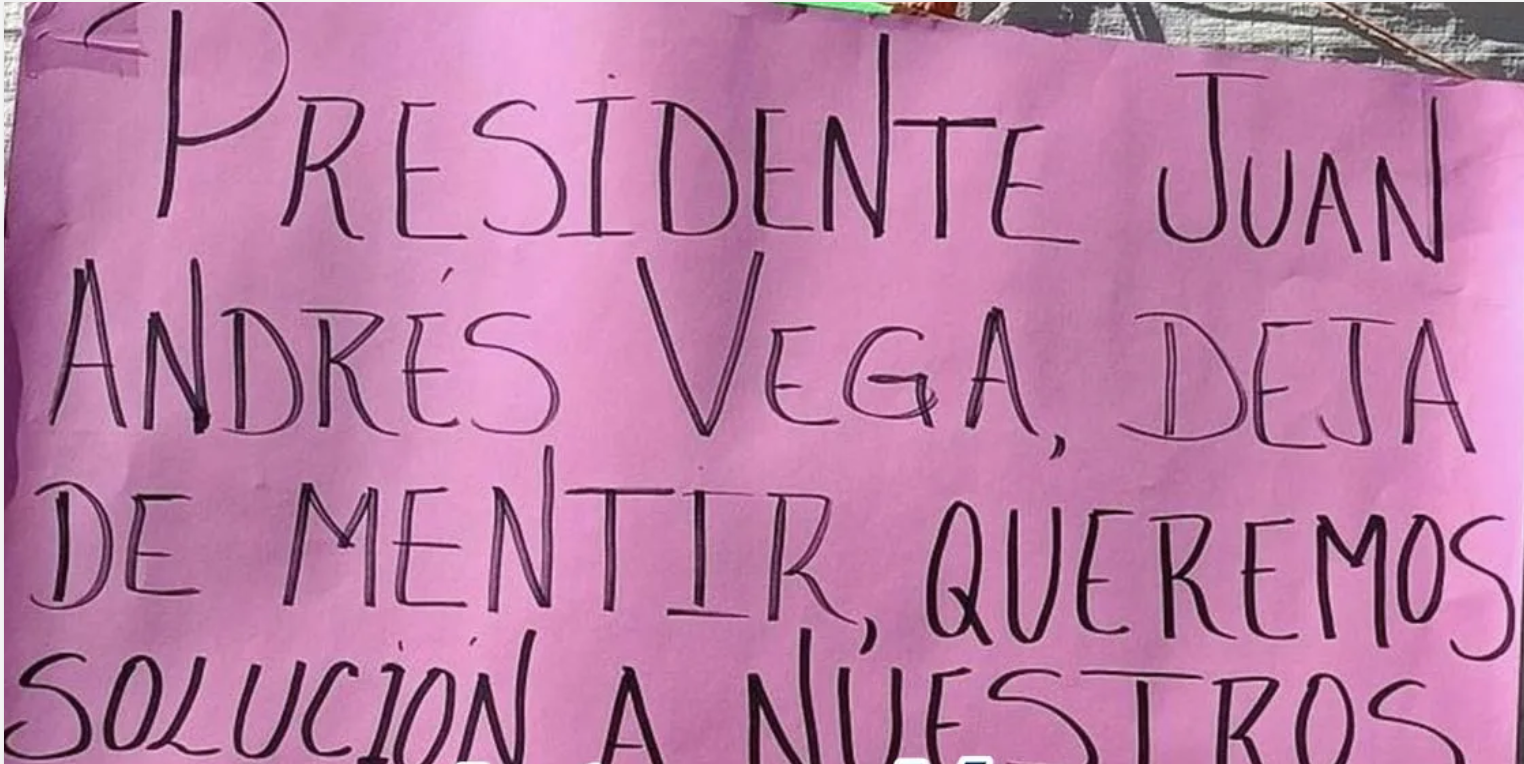 PRESIDENTE JUAN
ANDRÉS VEGA, DEJA
DE MENTIR, QUEREMOS
SOLUCIÓN A NUESTROS